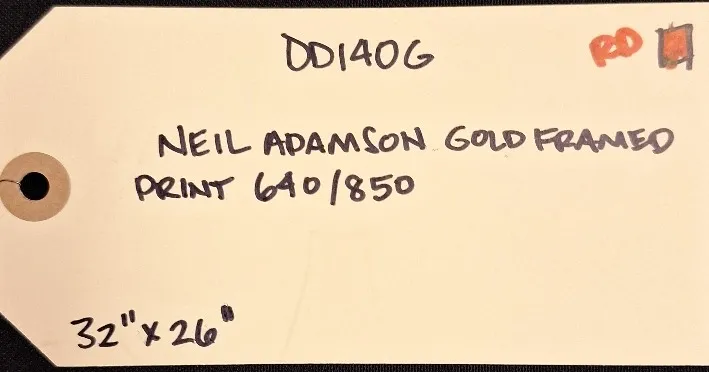 DD140G RD
NEIL ADAMSON GOLD FRAMED
PRINT 640/850
32" x 26"